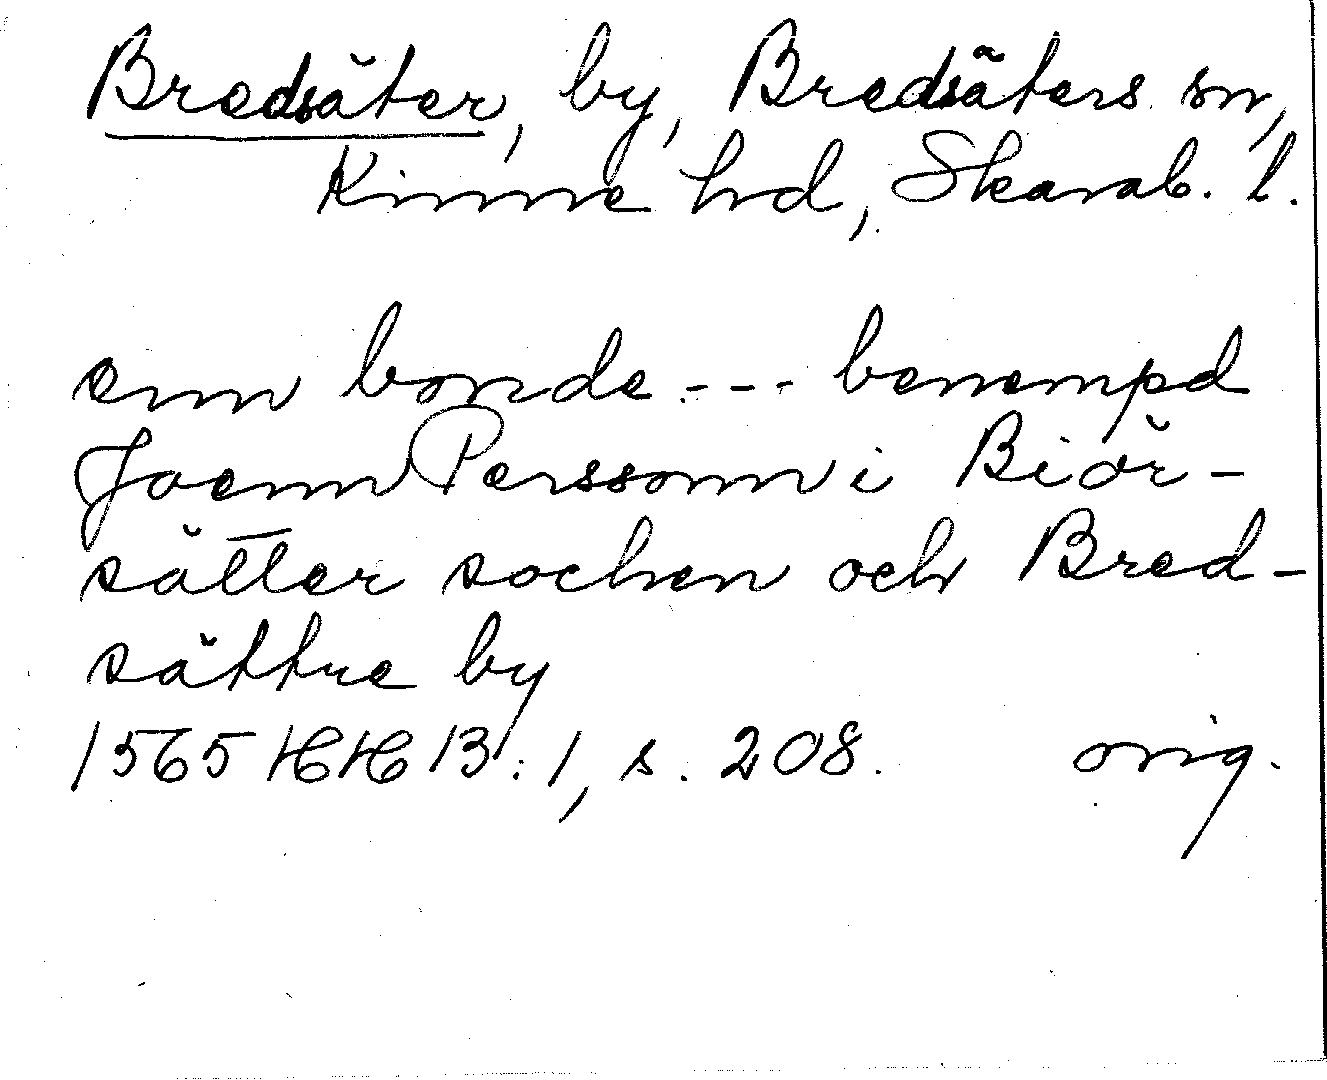 Bredsäter, by, Bredsäters sn,
Kinne hd, Skarab. l.
enn bonde --- benempd
Joenn Perssonn i Biör-
sätter sochen och Bred-
sättre by
1565 HH 13:1, s. 208. orig.